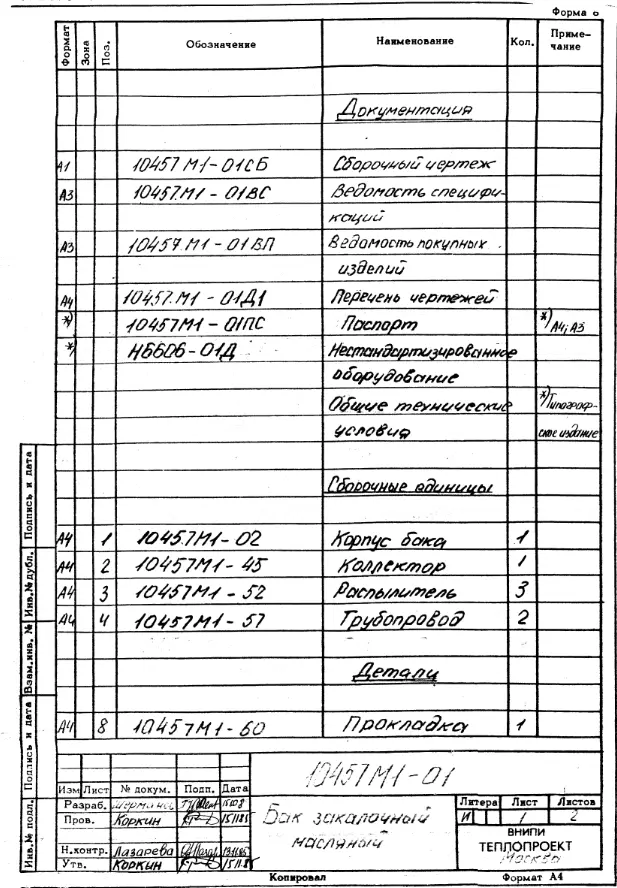 Форма 6
Формат Зона Поз. Обозначение Наименование Кол. Приме-
чание
Документация
А1 10457М1-01СБ Сборочный чертеж
А3 10457.М1-01ВС Ведомость специфи-
каций
А3 10457.М1-01ВП Ведомость покупных
изделий
А4 10457.М1-01Д1 Перечень чертежей
*) 10457М1-01ПС Паспорт *) А4; А3
*) Н6606-01Д Нестандартизированное
оборудование
Общие технические *) Типограф-
условия ское издание
Сборочные единицы
А4 1 10457М1-02 Корпус бака 1
А4 2 10457М1-45 Коллектор 1
А4 3 10457М1-52 Распылитель 3
А4 4 10457М1-57 Трубопровод 2
Детали
А4 8 10457М1-60 Прокладка 1
Инв.№ подл. Подпись и дата Взам.инв. № Инв.№ дубл. Подпись и дата
10457М1-01
Изм Лист № докум. Подп. Дата
Разраб.
Пров. Коркин
Н.контр. Лазарева
Утв. Коркин
Бак закалочный
масляный
Литера Лист Листов
И 1 2
ВНИПИ
ТЕПЛОПРОЕКТ
Москва
Копировал Формат А4